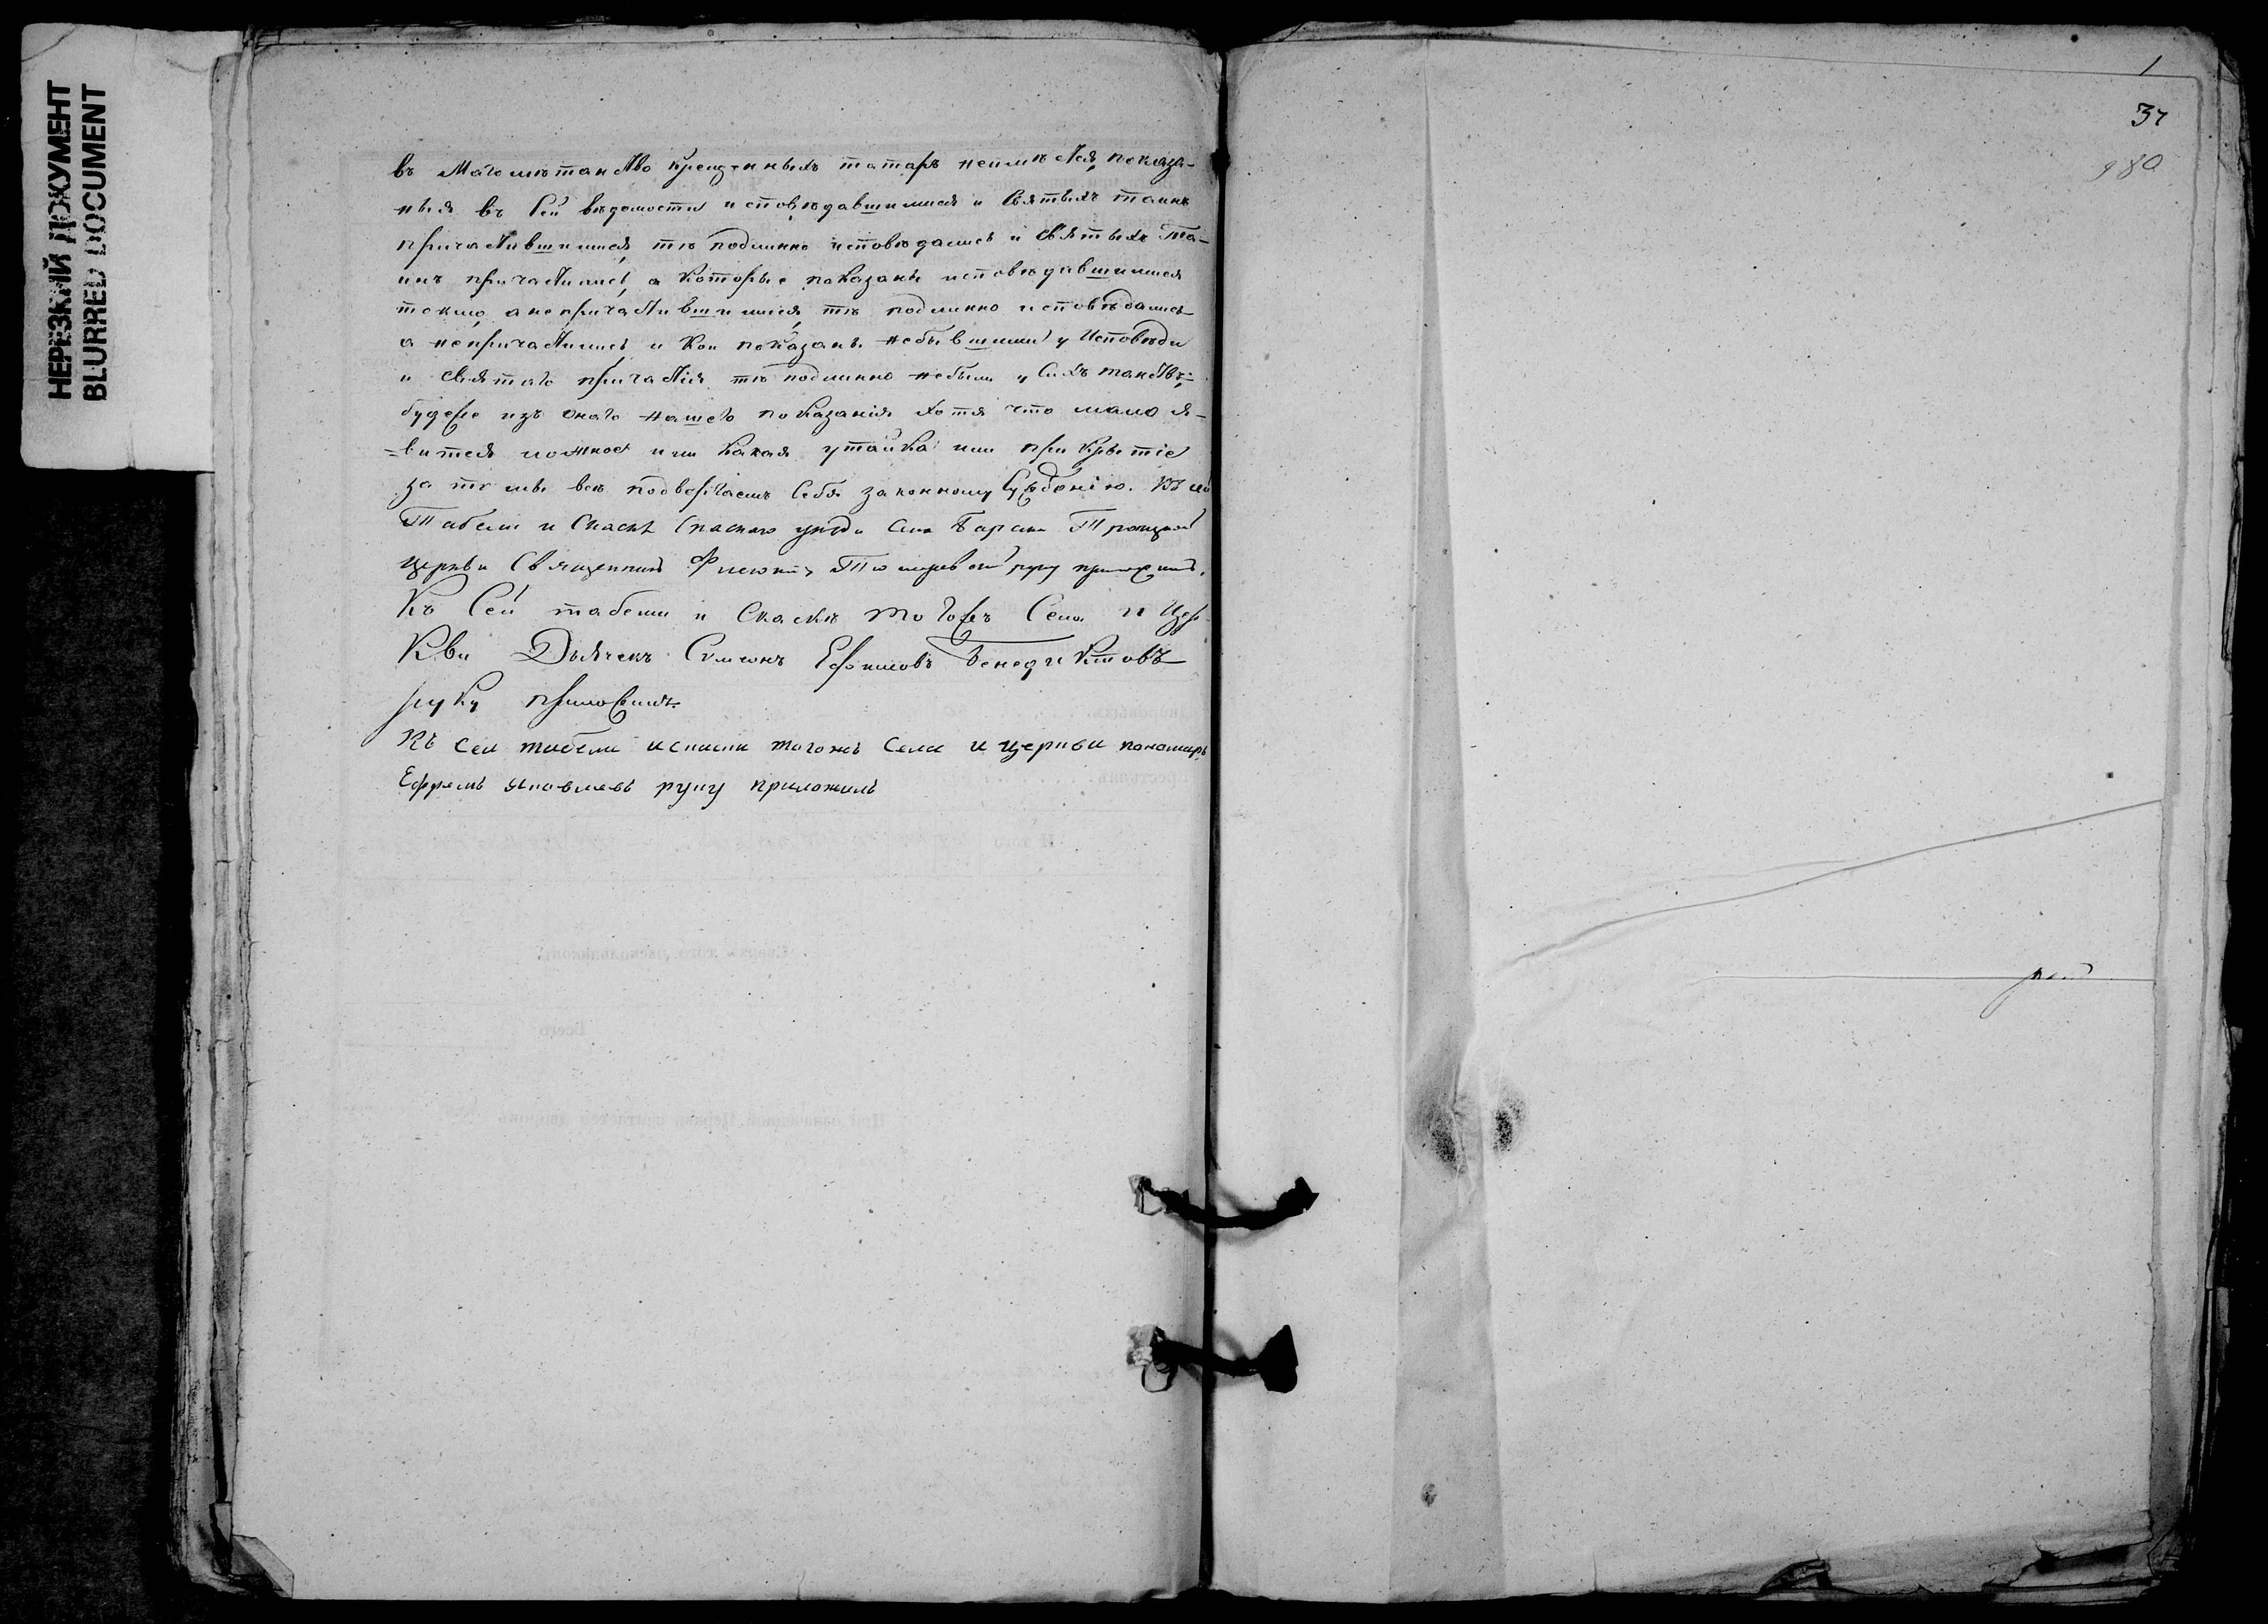 НЕРЕЗКИЙ ДОКУМЕНТ
BLURRED DOCUMENT
въ Магометанство крещенныхъ татаръ неимѣется, показа-
ныя въ сей вѣдомости исповѣдавшимися и святыхъ таинъ
причастившимися, тѣ подлинно исповѣдались и святыхъ Та-
инъ причастились, а которые показаны исповѣдавшимися
токмо, а непричастившимися, тѣ подлинно исповѣдались
а непричастились, и кои показаны небывшими у Исповѣди
и святаго причастія тѣ подлинно небыли у сихъ таинствъ;
буде же изъ онаго нашего показанія хотя что мало я-
=вится ложное или какая утайка или прикрытіе
за то мы всѣ подвергаемъ себя законному сужденію. Къ сей
Табели и Скаскѣ Спаскаго уѣзда села Троицкой
церкви Священникъ руку приложилъ.
Къ Сей табели и Скаскѣ тогожъ Села и Цер-
кви Дьячекъ Симеонъ Ефимовъ Бенедиктовъ
руку приложилъ.
Къ сей табели искаски тогожъ села и церкви пономарь
Ефремъ Яковлевъ руку приложилъ
1
37
980
И того
Сверхъ того раскольниковъ
Всего
При означенной Церкви считается дворовъ